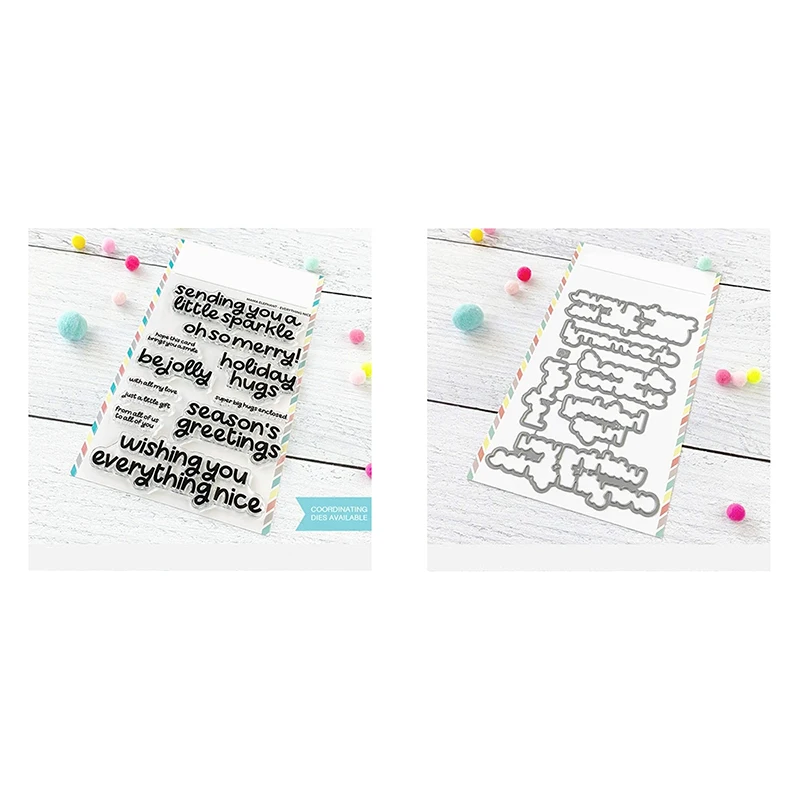 sending you a
little sparkle
oh so merry!
hope this card
brings you a smile
be jolly
holiday
hugs
with all my love
just a little gift
super big hugs enclosed
from all of us
to all of you
season's
greetings
wishing you
everything nice
COORDINATING
DIES AVAILABLE